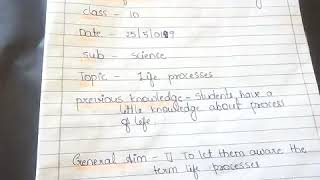 class - 10
Date - 25/5/019
Sub - science
Topic - Life processes
previous knowledge - students, have a
little knowledge about process
of life
General Aim - To let them aware the
term life processes